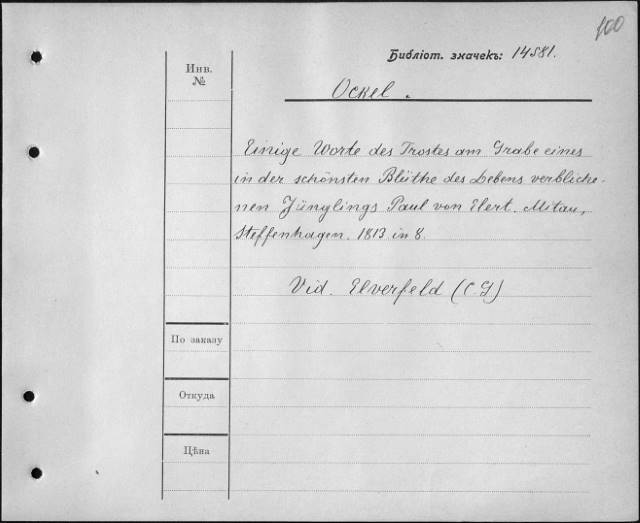 100
Библіот. значекъ: 14581.
Инв.
№
Ockel.
Einige Worte des Trostes am Grabe eines
in der schönsten Blüthe des Lebens verbliche-
nen Jünglings Paul von Elert. Mitau,
Steffenhagen. 1813 in 8.
Vid. Elverfeld (C. G)
По заказу
Откуда
Цѣна